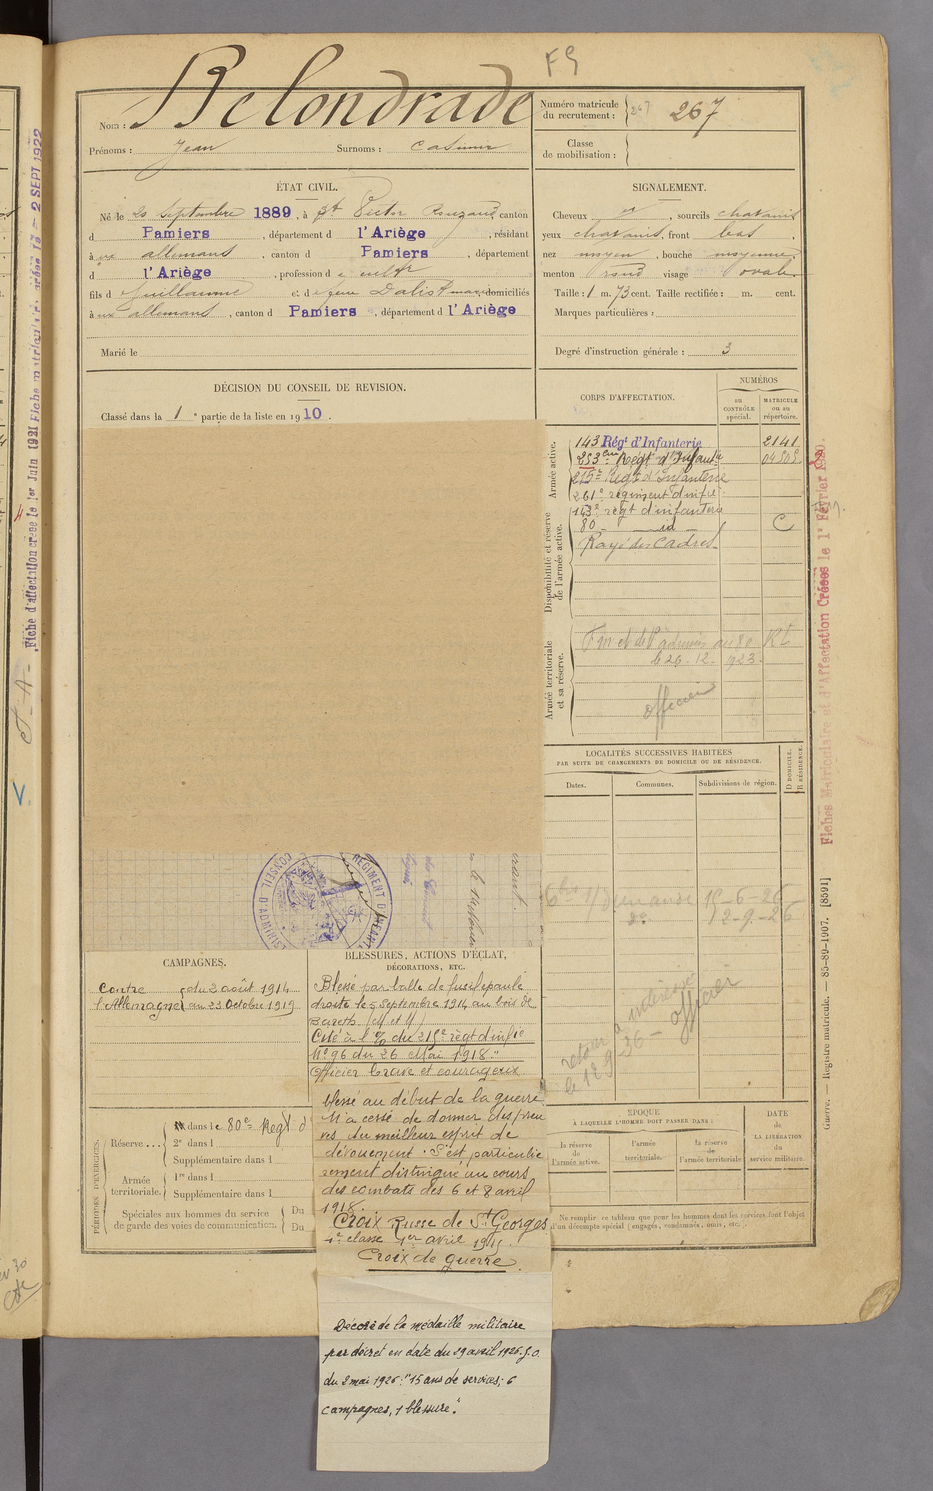 F 9
Nom : Belondrade
Prénoms : Jean Surnoms : Casimir
Numéro matricule du recrutement : 267 267
Classe de mobilisation :
ÉTAT CIVIL.
Né le 20 Septembre 1889, à St Victor Rouzaud, canton
d Pamiers, département d l'Ariège, résidant
à allemans, canton d Pamiers, département
d l'Ariège, profession d cultr
fils d Guillaume et d domiciliés
à allemans, canton d Pamiers, département d l'Ariège
Marié le
SIGNALEMENT.
Cheveux , sourcils chatains
yeux chatains, front bas,
nez moyen, bouche moyenne,
menton rond visage ovale.
Taille : 1 m. 73 cent. Taille rectifiée : m. cent.
Marques particulières :
Degré d'instruction générale : 3
DÉCISION DU CONSEIL DE REVISION.
Classé dans la 1e partie de la liste en 1910.
CORPS D'AFFECTATION.
NUMÉROS
au CONTRÔLE spécial.
MATRICULE ou au répertoire.
Armée active.
Disponibilité et réserve de l'armée active.
Armée territoriale et sa réserve.
143 Régt d'Infanterie 2141
253eme Régt d'Infantie
215e Régt d'Infanterie
261e régiment d'infie
143e régt d'infanterie
80 - id - C
Rayé des Cadres
au 80 RI
le 26. 12. 1923.
officier
LOCALITÉS SUCCESSIVES HABITÉES
PAR SUITE DE CHANGEMENTS DE DOMICILE OU DE RÉSIDENCE.
Dates.
Communes.
Subdivisions de région.
D DOMICILE.
R RÉSIDENCE.
15-6-26
12-9-26
retour à intéressé
officier
CONSEIL D'ADMINIS
RÉGIMENT D'INFANT
CAMPAGNES.
Contre l'Allemagne du 2 août 1914
au 23 Octobre 1919
BLESSURES, ACTIONS D'ÉCLAT,
DÉCORATIONS, ETC.
Blessé par balle de fusil épaule
droite le 5 Septembre 1914 au bois de
Bareth (M et M)
Cité à l'% du 215e règt d'infie
No 96 du 26 Mai 1918."
Officier brave et courageux
blessé au début de la guerre
N'a cessé de donner des preu
ves du meilleur esprit de
dévouement. S'est particuliè
rement distingué au cours
des combats des 6 et 8 avril
1918.
Croix Russe de St Georges
4e classe 1er avril 1915.
Croix de guerre
Décoré de la médaille militaire
par décret en date du 29 avril 1926. J.O.
du 2 mai 1926 : "15 ans de services; 6
campagnes, 1 blessure".
PÉRIODES D'EXERCICES.
Réserve ...
dans le 80e Régt d'
2e dans l
Supplémentaire dans l
Armée territoriale.
1re dans l
Supplémentaire dans l
Spéciales aux hommes du service
de garde des voies de communication.
Du
Du
ÉPOQUE
À LAQUELLE L'HOMME DOIT PASSER DANS :
la réserve de l'armée active.
l'armée territoriale.
la réserve de l'armée territoriale
DATE
de
LA LIBÉRATION
du
service militaire.
Ne remplir ce tableau que pour les hommes dont les services font l'objet
d'un décompte spécial (engagés, condamnés, omis, etc.).
Fiches Matriculaire et d'Affectation Créées le 1er Février 1920.
Guerre. — Registre matricule. — 85-89-1907. [8591]
Fiche d'affectation créée le 1er Juin 1921 Fiche matriculaire créée le - 2 SEPT 1922